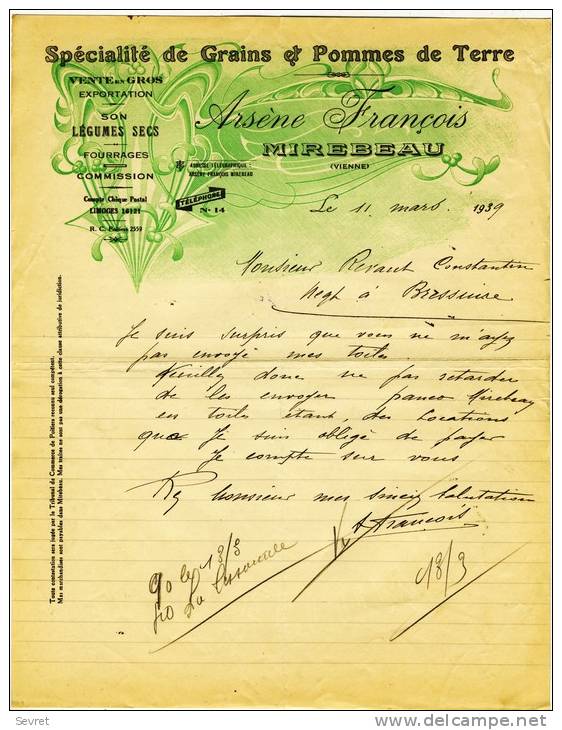 Spécialité de Grains & Pommes de Terre
VENTE EN GROS
EXPORTATION
SON
LÉGUMES SECS
FOURRAGES
COMMISSION
Compte Chèque Postal
LIMOGES 16121
R. C. Poitiers 2559
Arsène François
MIREBEAU
(VIENNE)
ADRESSE TÉLÉGRAPHIQUE :
ARSÈNE FRANÇOIS MIREBEAU
TÉLÉPHONE
N° 14
Le 11 mars 1939
Monsieur Constantin
Negt à Bressuire
Je suis surpris que vous ne m'ayez
pas envoyé mes toiles.
Veuillez donc ne pas retarder
de les envoyer Mirebeau
en toiles étant des locations
que Je suis obligé de payer
Je compte sur vous
Monsieur mes salutation
A François
le 13/3
13/3
Toute contestation sera jugée par le Tribunal de Commerce de Poitiers reconnu seul compétent.
Mes marchandises sont payables dans Mirebeau. Mes traites ne sont pas une dérogation à cette clause attributive de juridiction.
Sevret
delcampe.net